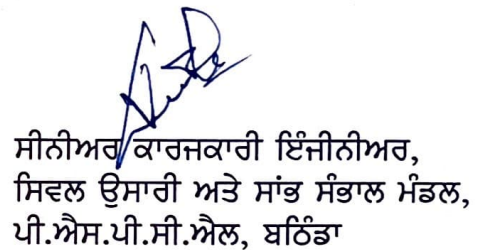 ਸੀਨੀਅਰ ਕਾਰਜਕਾਰੀ ਇੰਜੀਨੀਅਰ,
ਸਿਵਲ ਉਸਾਰੀ ਅਤੇ ਸਾਂਭ ਸੰਭਾਲ ਮੰਡਲ,
ਪੀ.ਐਸ.ਪੀ.ਸੀ.ਐਲ, ਬਠਿੰਡਾ